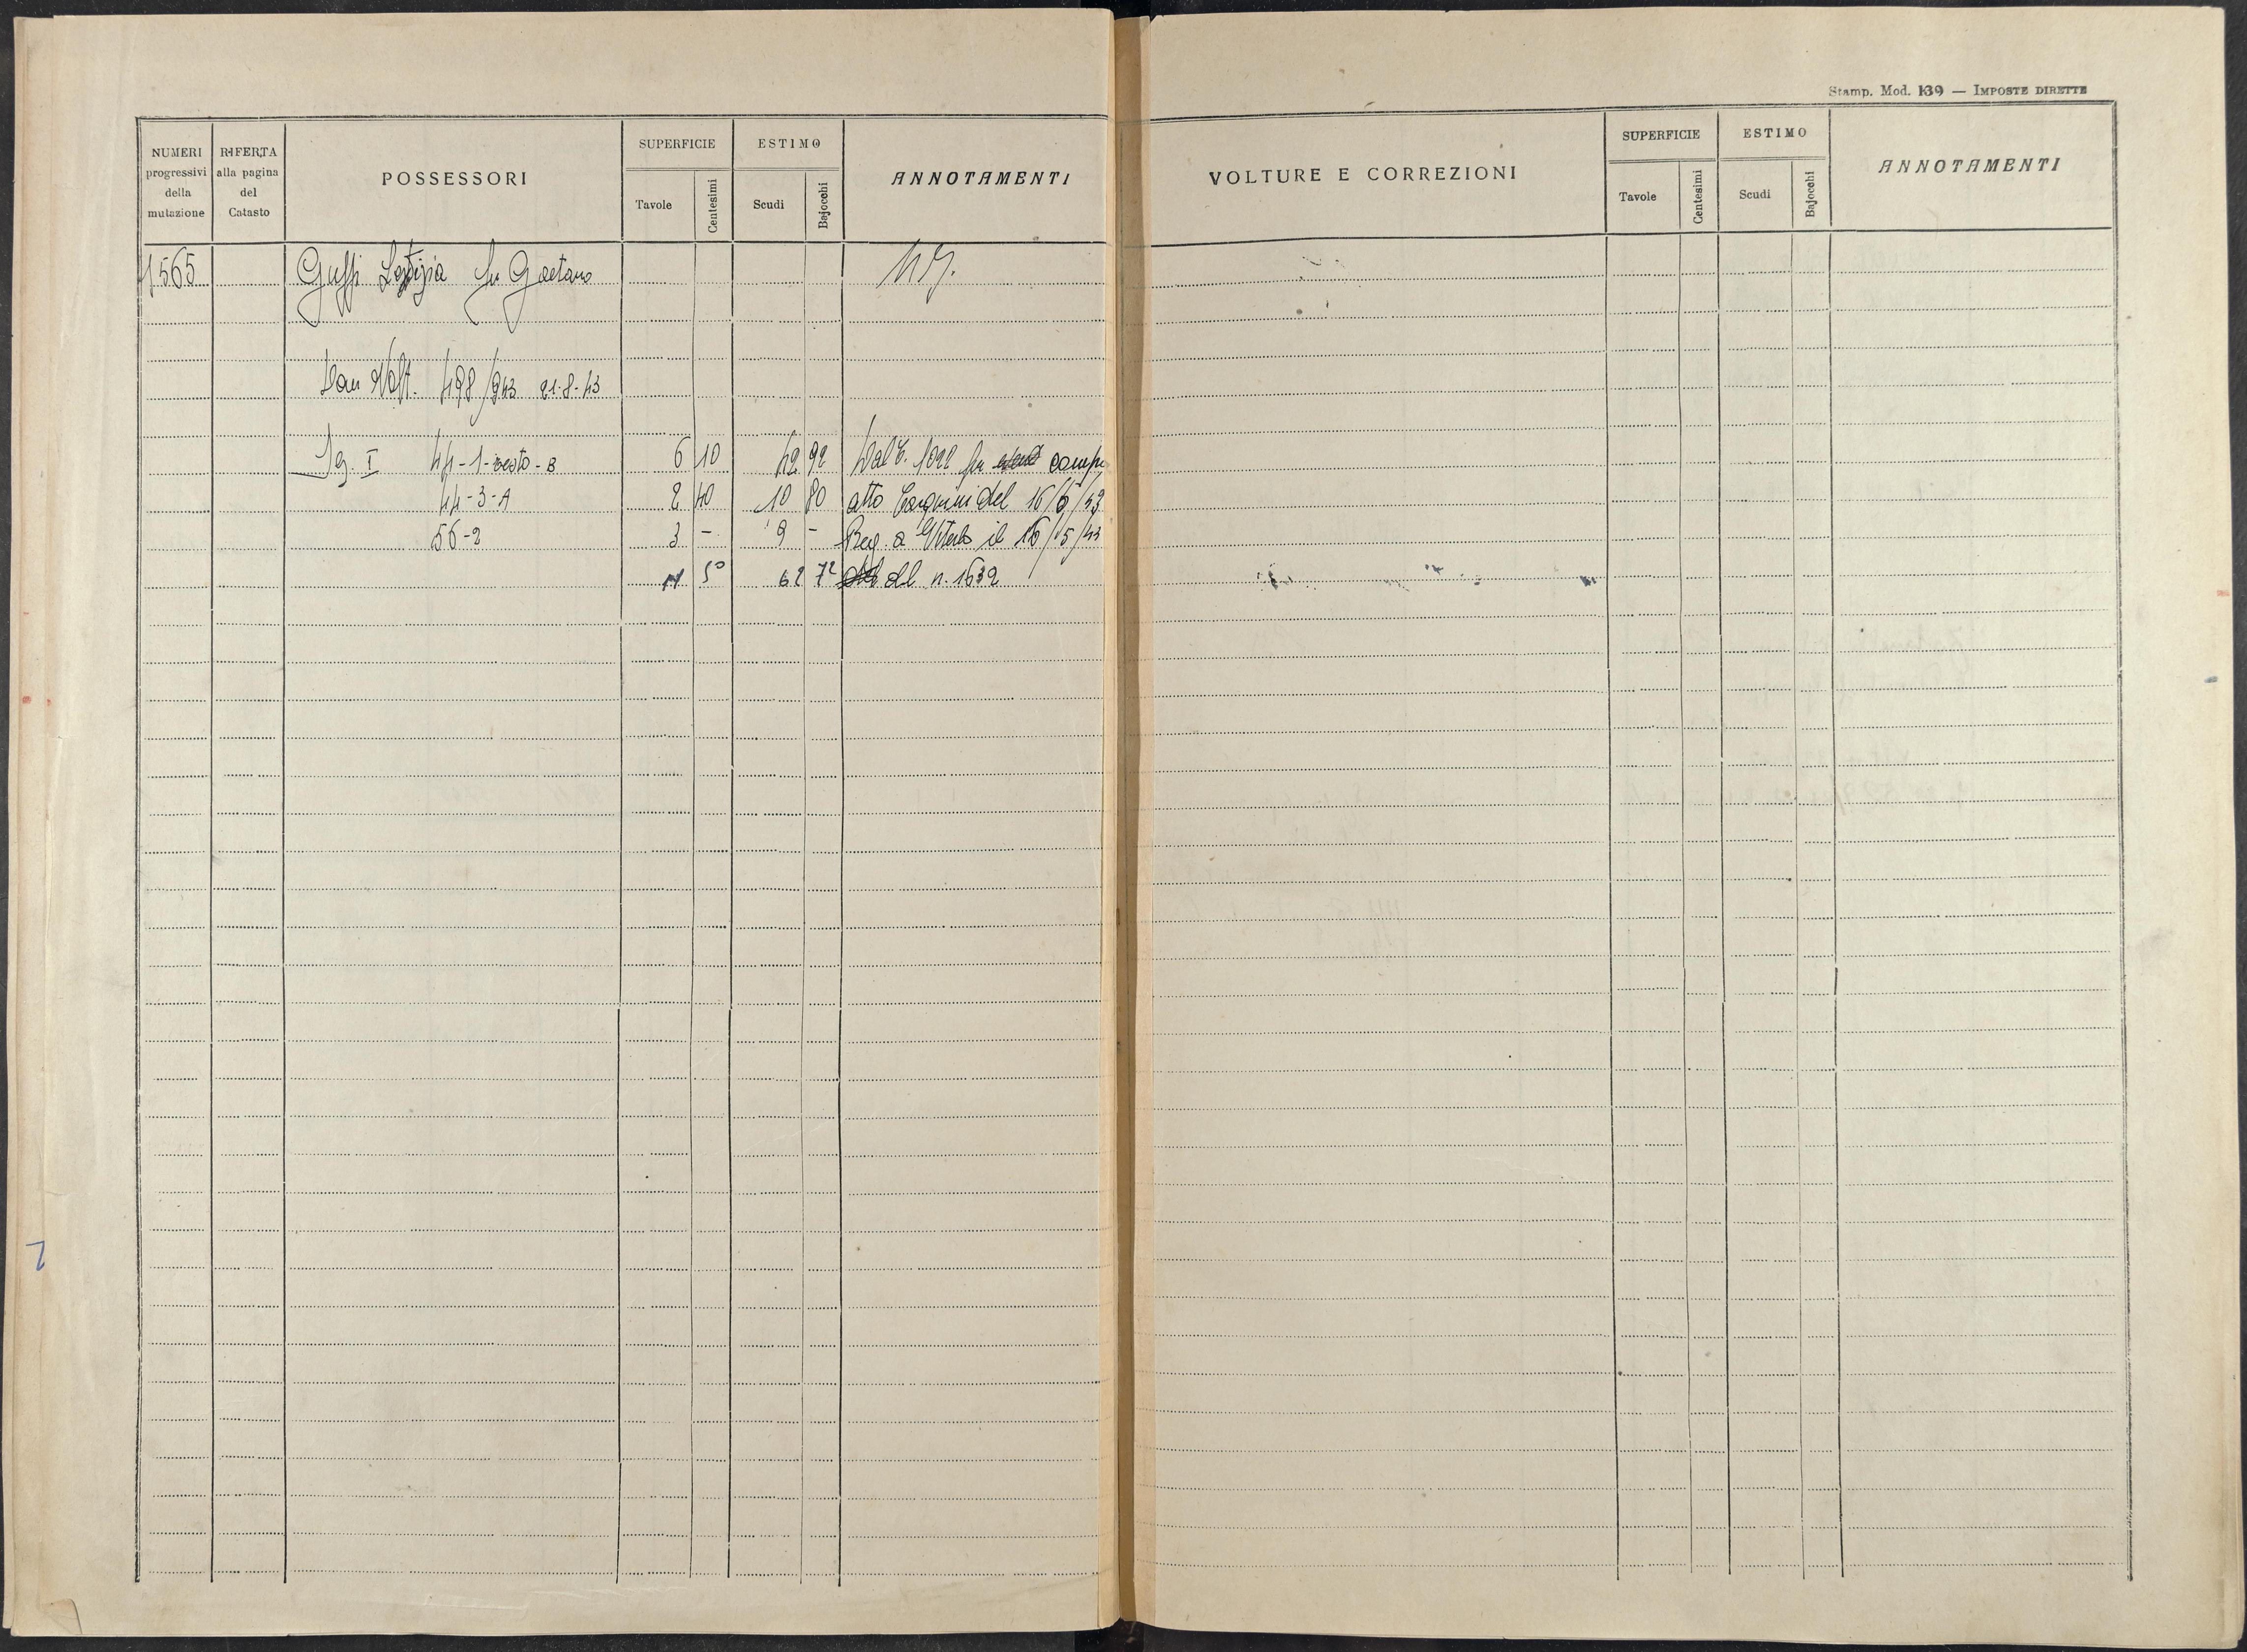 Stamp. Mod. 139 — IMPOSTE DIRETTE
NUMERI progressivi della mutazione
RIFERTA alla pagina del Catasto
POSSESSORI
SUPERFICIE
Tavole
Centesimi
ESTIMO
Scudi
Bajocchi
ANNOTAMENTI
1565 Letizia fu Gaetano
498/943 21-8-43
Sez. I 44-1-resto-B 6 10 42 92 Dal C. 1022 per comp
44-3-A 2 40 10 80 atto del 16/5/43
56-2 3 - 9 - Reg. a Viterbo il 16/5/43
11 50 62 72 al n. 1632
VOLTURE E CORREZIONI
SUPERFICIE
Tavole
Centesimi
ESTIMO
Scudi
Bajocchi
ANNOTAMENTI